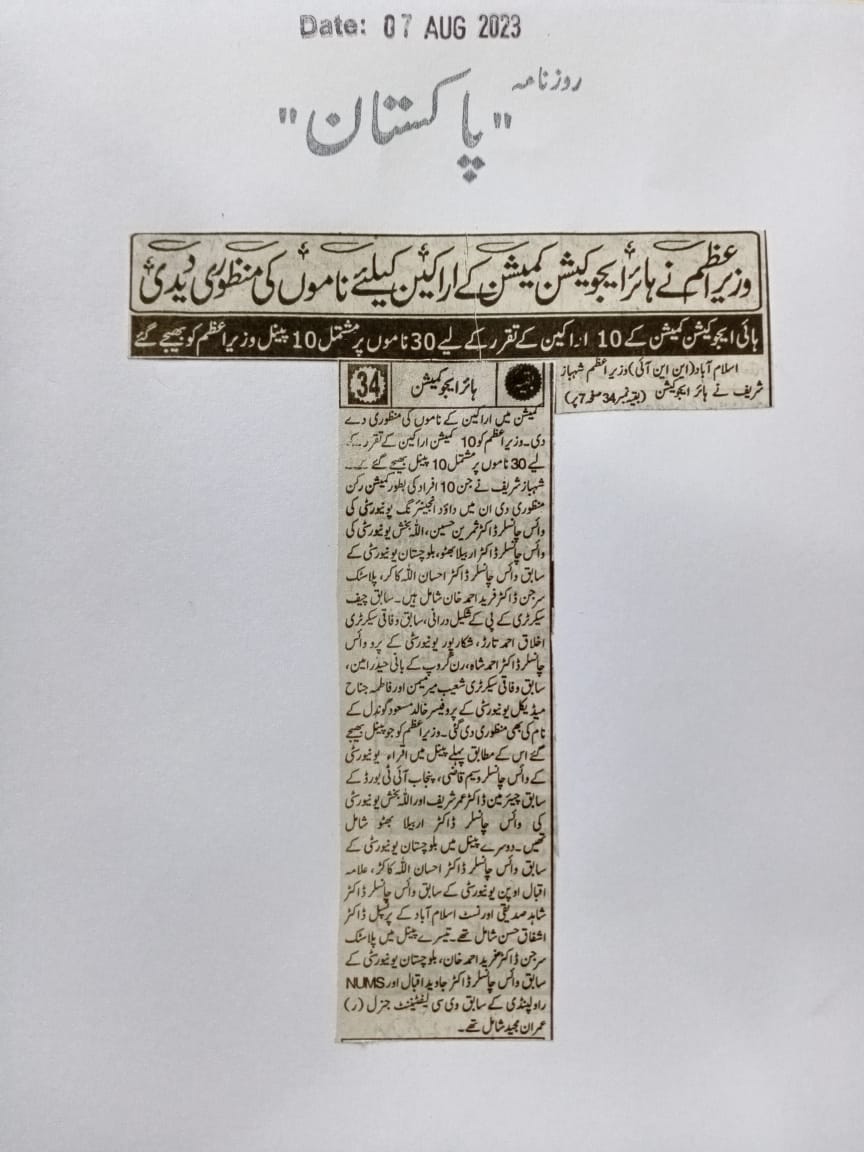 Date: 07 AUG 2023
روزنامہ
"پاکستان"
وزیراعظم نے ہائر ایجوکیشن کمیشن کے اراکین کیلئے ناموں کی منظوری دیدی
ہائی ایجوکیشن کمیشن کے 10 اراکین کے تقرر کے لیے 30 ناموں پر مشتمل 10 پینل وزیراعظم کو بھیجے گئے
اسلام آباد (این این آئی) وزیراعظم شہباز
شریف نے ہائر ایجوکیشن (بقیہ نمبر 34 صفحہ 7 پر)
بقیہ ہائر ایجوکمیشن 34
کمیشن میں اراکین کے ناموں کی منظوری دے
دی۔ وزیراعظم کو 10 کمیشن اراکین کے تقرر کے
لیے 30 ناموں پر مشتمل 10 پینل بھیجے گئے تھے۔
شہباز شریف نے جن 10 افراد کی بطور کمیشن رکن
منظوری دی ان میں داؤد انجینئرنگ یونیورسٹی کی
وائس چانسلر ڈاکٹر ثمرین حسین، اللہ بخش یونیورسٹی کی
وائس چانسلر ڈاکٹر اربیلا بھٹو، بلوچستان یونیورسٹی کے
سابق وائس چانسلر ڈاکٹر احسان اللہ کاکڑ، پلاسٹک
سرجن ڈاکٹر فرید احمد خان شامل ہیں۔ سابق چیف
سیکرٹری کے پی کے شکیل درانی، سابق وفاقی سیکرٹری
اخلاق احمد تارڑ، شکارپور یونیورسٹی کے پرو وائس
چانسلر ڈاکٹر احمد شاہ، رن گروپ کے بانی حیدر امین،
سابق وفاقی سیکرٹری شعیب میر میمن اور فاطمہ جناح
میڈیکل یونیورسٹی کے پروفیسر خالد مسعود گوندل کے
نام کی بھی منظوری دی گئی۔ وزیراعظم کو جو پینل بھیجے
گئے اس کے مطابق پہلے پینل میں اقراء یونیورسٹی
کے وائس چانسلر وسیم قاضی، پنجاب آئی ٹی بورڈ کے
سابق چیئرمین ڈاکٹر عمر شریف اور اللہ بخش یونیورسٹی
کی وائس چانسلر ڈاکٹر اربیلا بھٹو شامل
تھیں۔ دوسرے پینل میں بلوچستان یونیورسٹی کے
سابق وائس چانسلر ڈاکٹر احسان اللہ کاکڑ، علامہ
اقبال اوپن یونیورسٹی کے سابق وائس چانسلر ڈاکٹر
شاہد صدیقی اور نسٹ اسلام آباد کے پرنسپل ڈاکٹر
اشفاق حسن شامل تھے۔ تیسرے پینل میں پلاسٹک
سرجن ڈاکٹر فرید احمد خان، بلوچستان یونیورسٹی کے
سابق وائس چانسلر ڈاکٹر جاوید اقبال اور NUMS
راولپنڈی کے سابق وی سی لیفٹیننٹ جنرل (ر)
عمران مجید شامل تھے۔